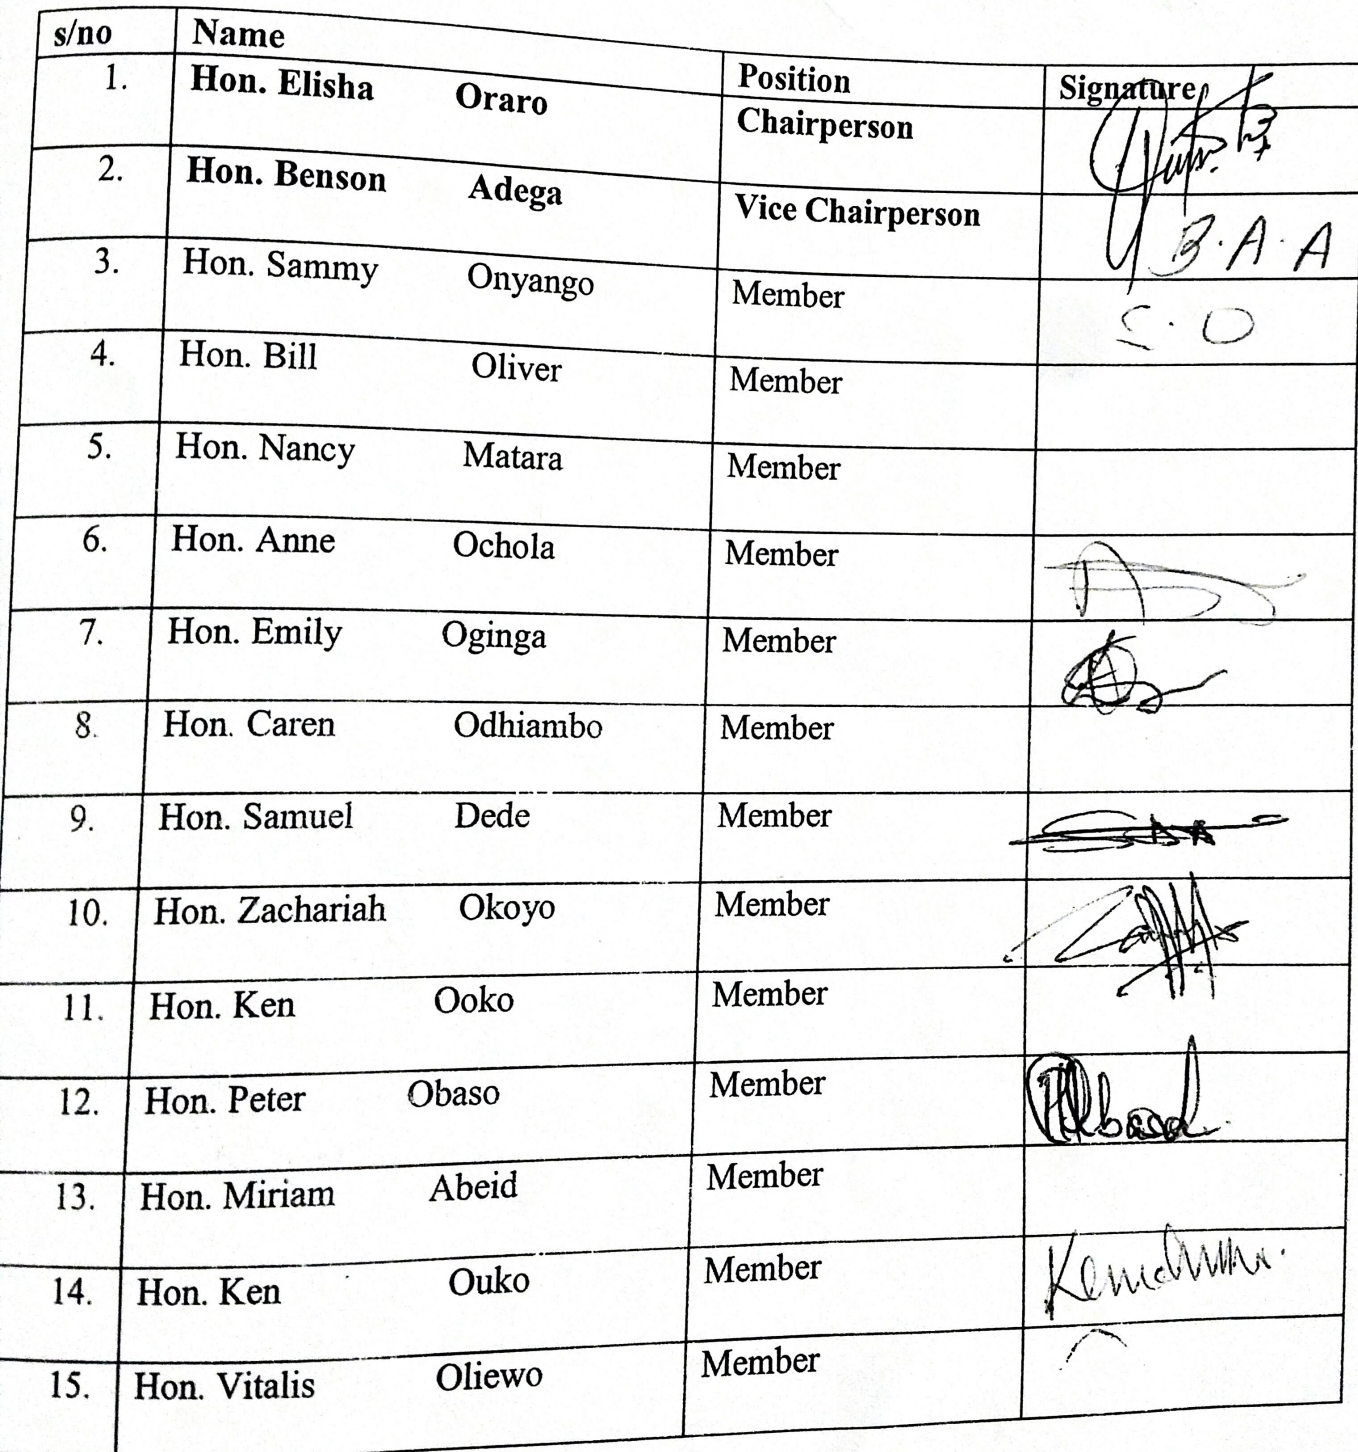 s/no Name Position Signature
1. Hon. Elisha Oraro Chairperson
2. Hon. Benson Adega Vice Chairperson B.A.A
3. Hon. Sammy Onyango Member S.O
4. Hon. Bill Oliver Member
5. Hon. Nancy Matara Member
6. Hon. Anne Ochola Member
7. Hon. Emily Oginga Member
8. Hon. Caren Odhiambo Member
9. Hon. Samuel Dede Member
10. Hon. Zachariah Okoyo Member
11. Hon. Ken Ooko Member
12. Hon. Peter Obaso Member
13. Hon. Miriam Abeid Member
14. Hon. Ken Ouko Member
15. Hon. Vitalis Oliewo Member